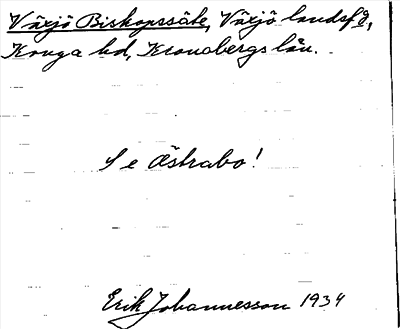 Växjö Biskopssäte, Växjö landsfg,
Konga hd, Kronobergs län.
Se Östrabo!
Erik Johannesson 1934